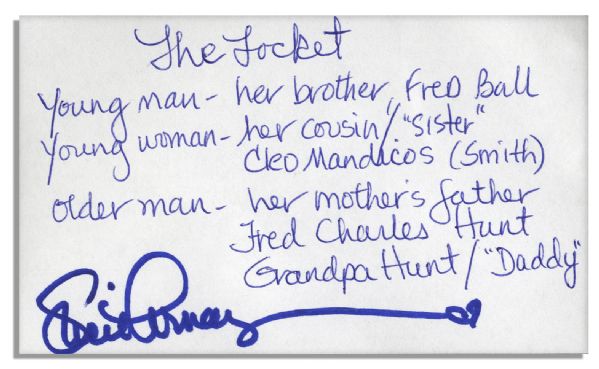 The Locket
Young man - her brother, Fred Ball
Young woman - her cousin/"Sister"
Cleo Mandicos (Smith)
older man - her mother's father
Fred Charles Hunt
Grandpa Hunt / "Daddy"